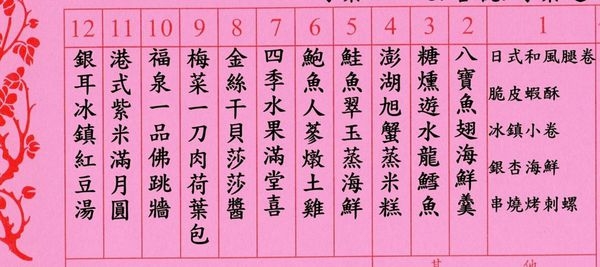 1
日式和風腿卷
脆皮蝦酥
冰鎮小卷
銀杏海鮮
串燒烤刺螺
2
八寶魚翅海鮮羹
3
糖燻遊水龍鱈魚
4
澎湖旭蟹蒸米糕
5
鮭魚翠玉蒸海鮮
6
鮑魚人蔘燉土雞
7
四季水果滿堂喜
8
金絲干貝莎莎醬
9
梅菜一刀肉荷葉包
10
福泉一品佛跳牆
11
港式紫米滿月圓
12
銀耳冰鎮紅豆湯